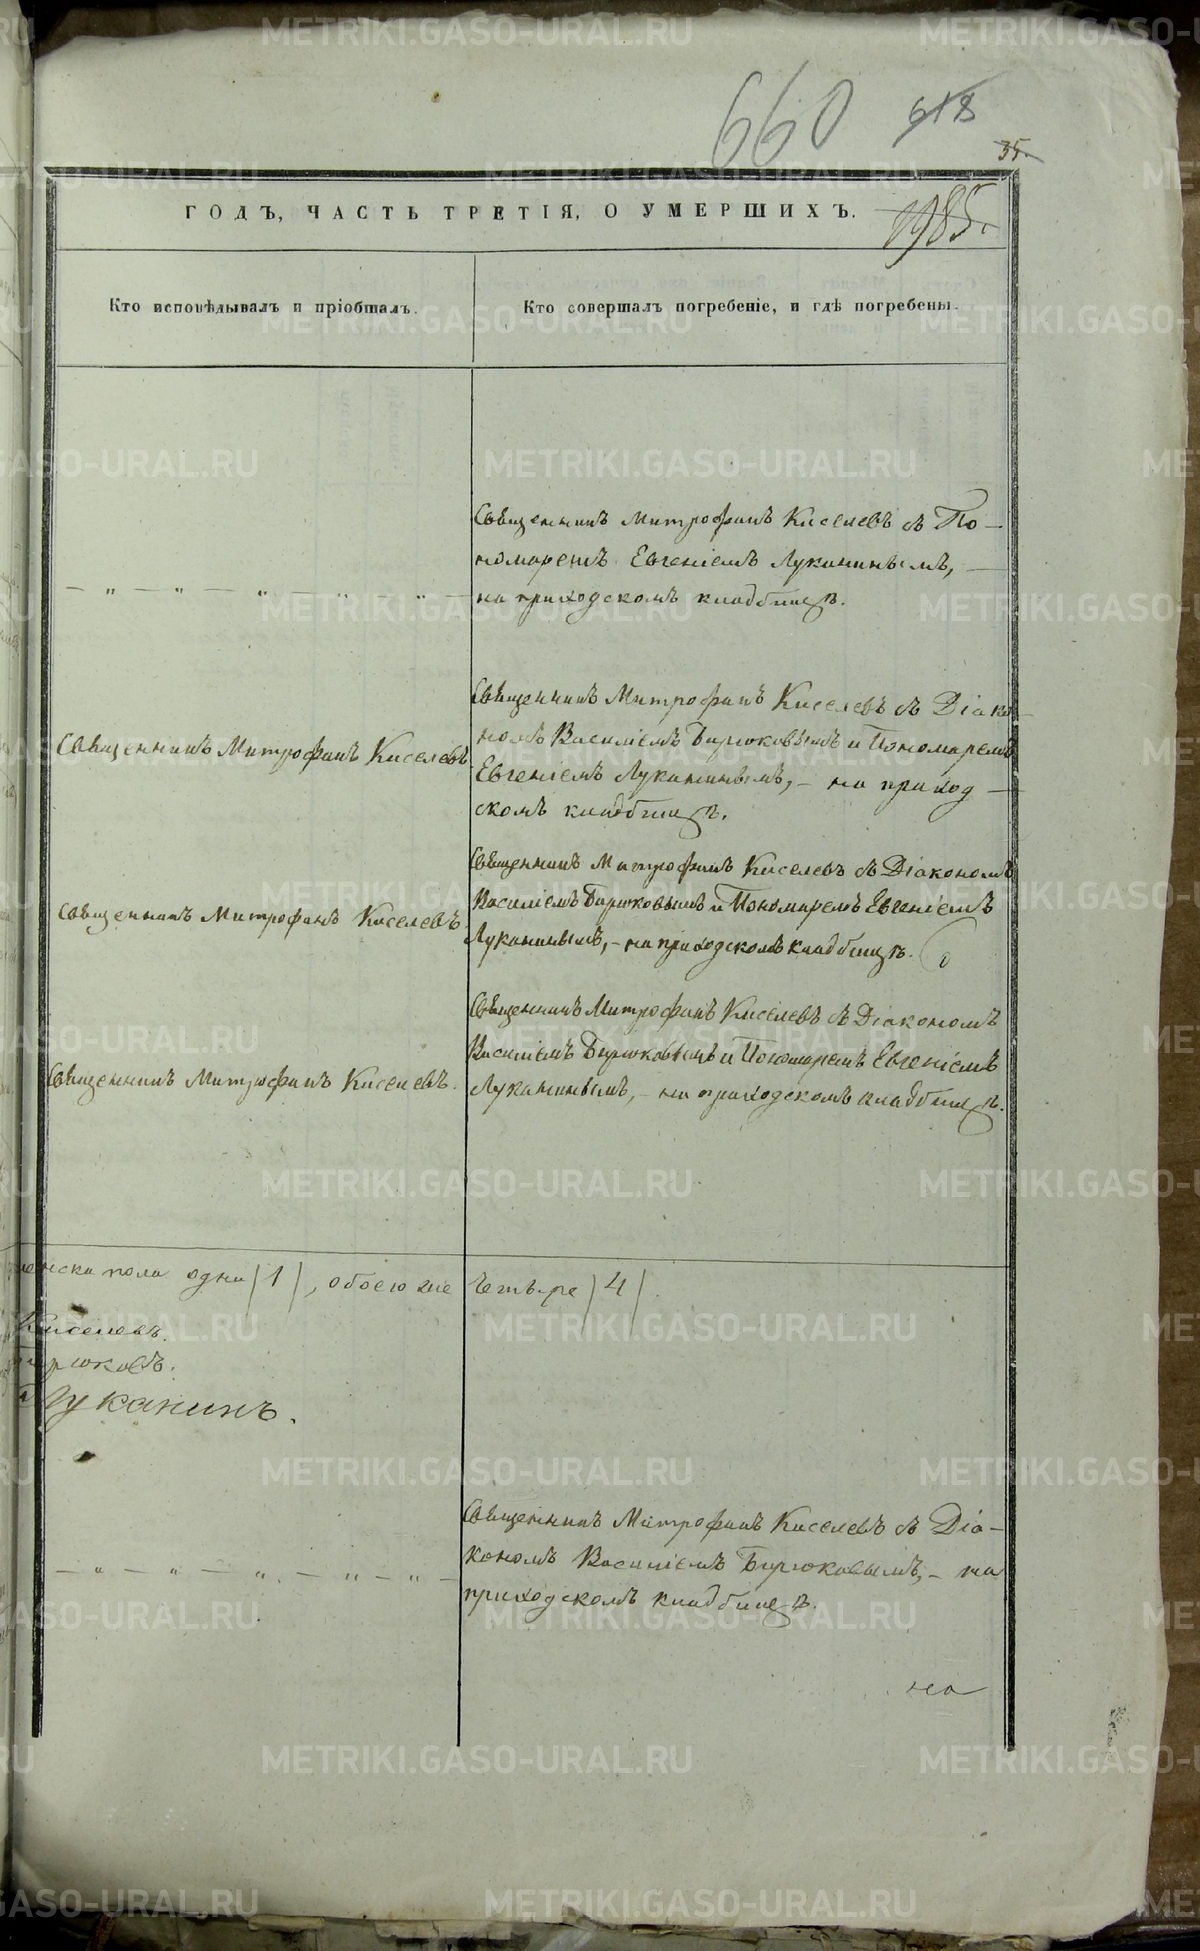 660 618
35.
ГОДЪ, ЧАСТЬ ТРЕТІЯ, О УМЕРШИХЪ.
1985.
Кто исповѣдывалъ и пріобщалъ.
Кто совершалъ погребеніе, и гдѣ погребены.
Священникъ Митрофанъ Киселевъ съ По-
номаремъ Евгеніемъ Луканинымъ, —
— „ — „ — „ — „ — „ —
на приходскомъ кладбищѣ.
Священникъ Митрофанъ Киселевъ
Священникъ Митрофанъ Киселевъ съ Діако-
номъ Василіемъ Бирюковымъ и Пономаремъ
Евгеніемъ Луканинымъ, — на приход —
скомъ кладбищѣ.
Священникъ Митрофанъ Киселевъ
Священникъ Митрофанъ Киселевъ съ Діакономъ
Василіемъ Бирюковымъ и Пономаремъ Евгеніемъ
Луканинымъ, — на приходскомъ кладбищѣ.
Священникъ Митрофанъ Киселевъ.
Священникъ Митрофанъ Киселевъ съ Діакономъ
Василіемъ Бирюковымъ и Пономаремъ Евгеніемъ
Луканинымъ, — на приходскомъ кладбищѣ.
женска пола одна (1), обоего же четыре (4).
Киселевъ.
Бирюковъ.
Луканинъ.
— „ — „ — „ — „ — „ —
Священникъ Митрофанъ Киселевъ съ Діа-
кономъ Василіемъ Бирюковымъ, — на
приходскомъ кладбищѣ.
на
METRIKI.GASO-URAL.RU